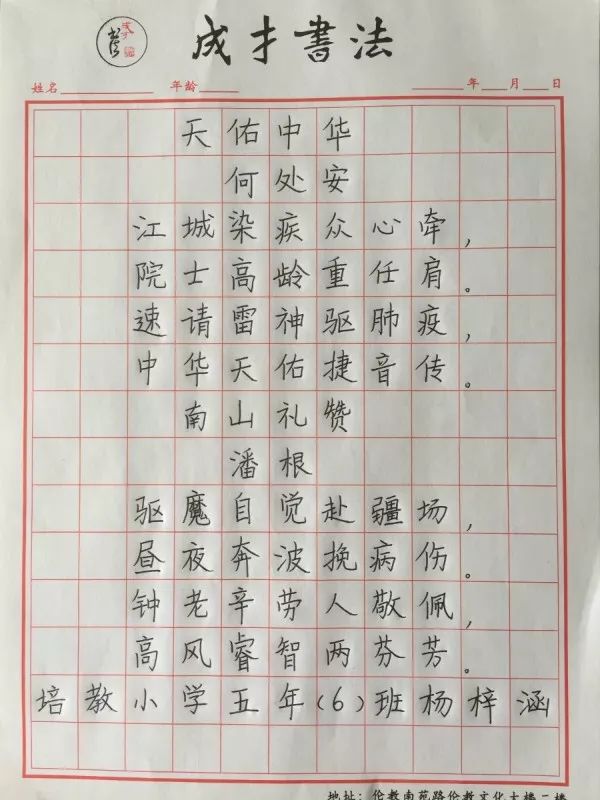 成才書法
姓名 年龄 年 月 日
天佑中华
何处安
江城染疾众心牵，
院士高龄重任肩。
速请雷神驱肺疫，
中华天佑捷音传。
南山礼赞
潘根
驱魔自觉赴疆场，
昼夜奔波挽病伤。
钟老辛劳人敬佩，
高风睿智两芬芳。
培教小学五年(6)班杨梓涵
地址：伦教南苑路伦教文化大楼二楼